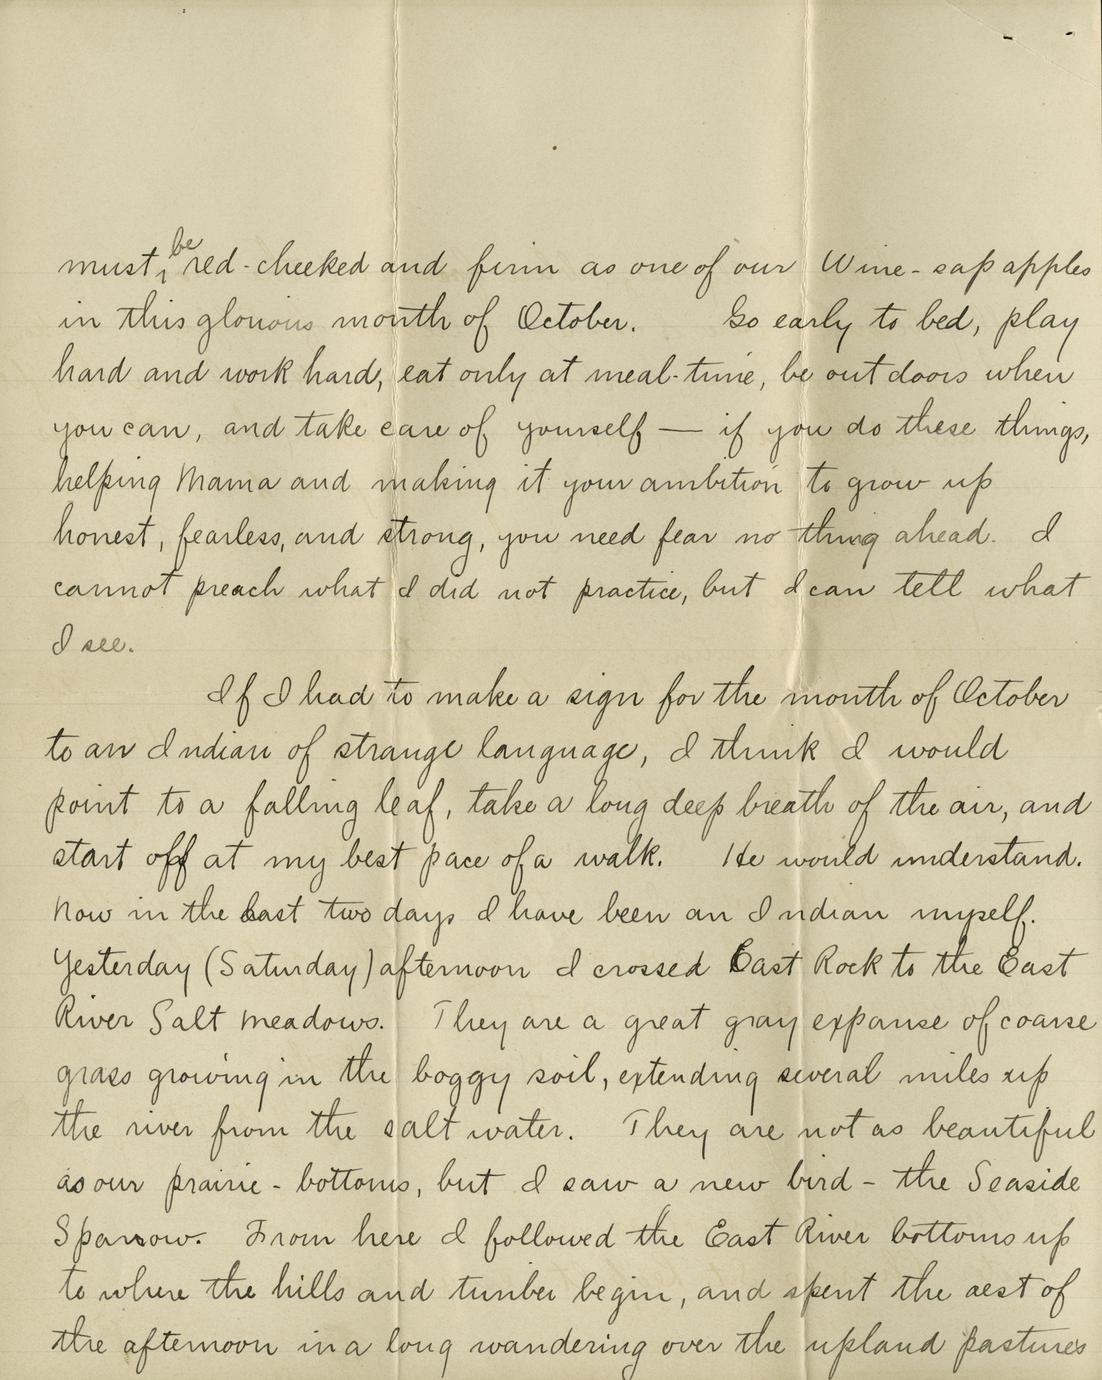 must be red-cheeked and firm as one of our Wine-sap apples
in this glorious month of October. Go early to bed, play
hard and work hard, eat only at meal-time, be out doors when
you can, and take care of yourself — if you do these things,
helping Mama and making it your ambition to grow up
honest, fearless, and strong, you need fear no thing ahead. I
cannot preach what I did not practice, but I can tell what
I see.
If I had to make a sign for the month of October
to an Indian of strange language, I think I would
point to a falling leaf, take a long deep breath of the air, and
start off at my best pace of a walk. He would understand.
Now in the last two days I have been an Indian myself.
Yesterday (Saturday) afternoon I crossed East Rock to the East
River Salt meadows. They are a great gray expanse of coarse
grass growing in the boggy soil, extending several miles up
the river from the salt water. They are not as beautiful
as our prairie-bottoms, but I saw a new bird - the Seaside
Sparrow. From here I followed the East River bottoms up
to where the hills and timber begin, and spent the rest of
the afternoon in a long wandering over the upland pastures